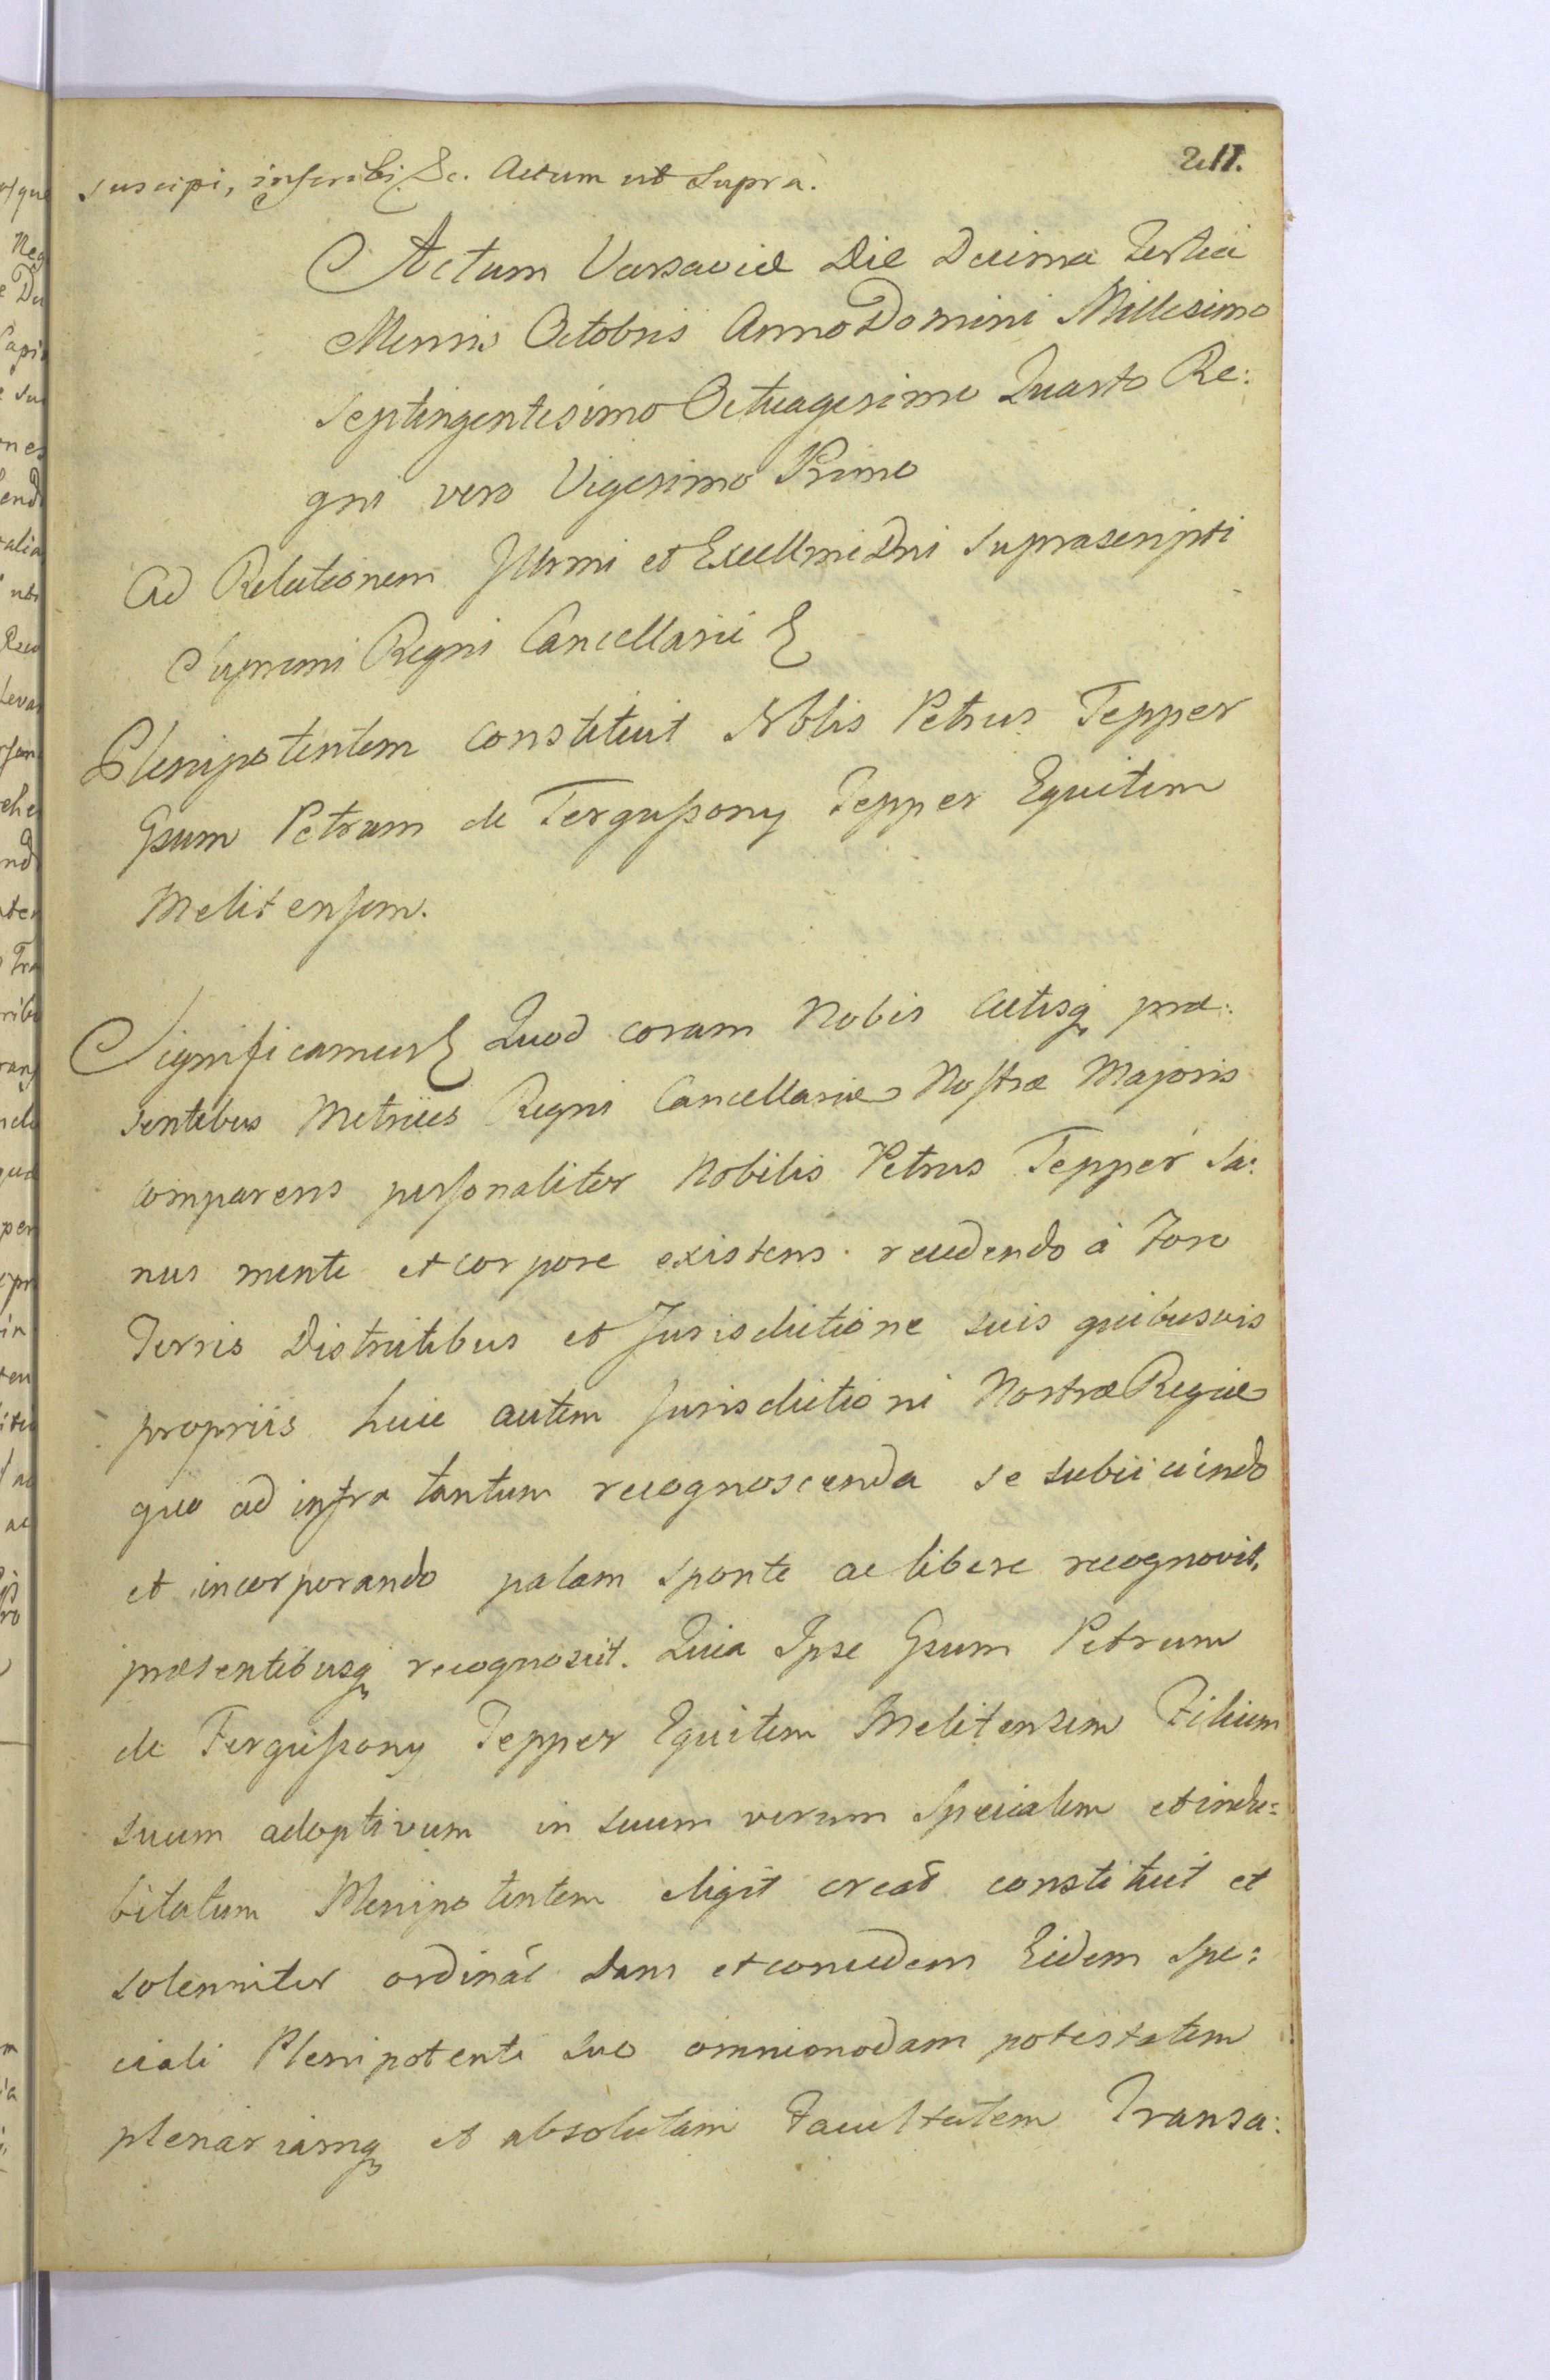 211.
suscipi, inscribi &c. Actum ut Supra.
Actum Varsaviæ Die Decima Tertia
Mensis Octobris Anno Domini Millesimo
Septingentesimo Octuagesimo Quarto Re:
gni vero Vigesimo Primo
Ad Relationem Illrmi et Excellmi Dni Suprascripti
Supremi Regni Cancellarii &
Plenipotentem constituit Nblis Petrus Tepper
Gsum Petrum de Fergussony Tepper Equitem
Melitensem.
Significamus & Quod coram Nobis Actisq præ:
sentibus Metrices Regni Cancellariæ Nostræ Majoris
comparens personaliter Nobilis Petrus Tepper Sa:
nus mente et corpore existens recedendo à Foro
Terris Districtibus et Jurisdictione suis quibusvis
propriis huic autem Jurisdictioni Nostræ Regiæ
quo ad infra tantum recognoscenda se subiiciendo
et incorporando palam sponte ac libere recognovit,
præsentibusq recognoscit. Quia Ipse Gsum Petrum
de Fergussony Tepper Equitem Melitensem Filium
suum adoptivum in suum verum Specialem et indu=
bitatum Plenipotentem eligit creat constituit et
solenniter ordinat dans et concedens Eidem Spe=
ciali Plenipotenti suo omnimodam potestatem
plenariamq et absolutam Facultatem Transa: